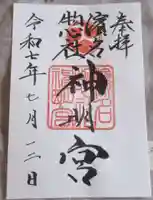 奉拝
濱名
惣社
神明宮
令和七年七月 日